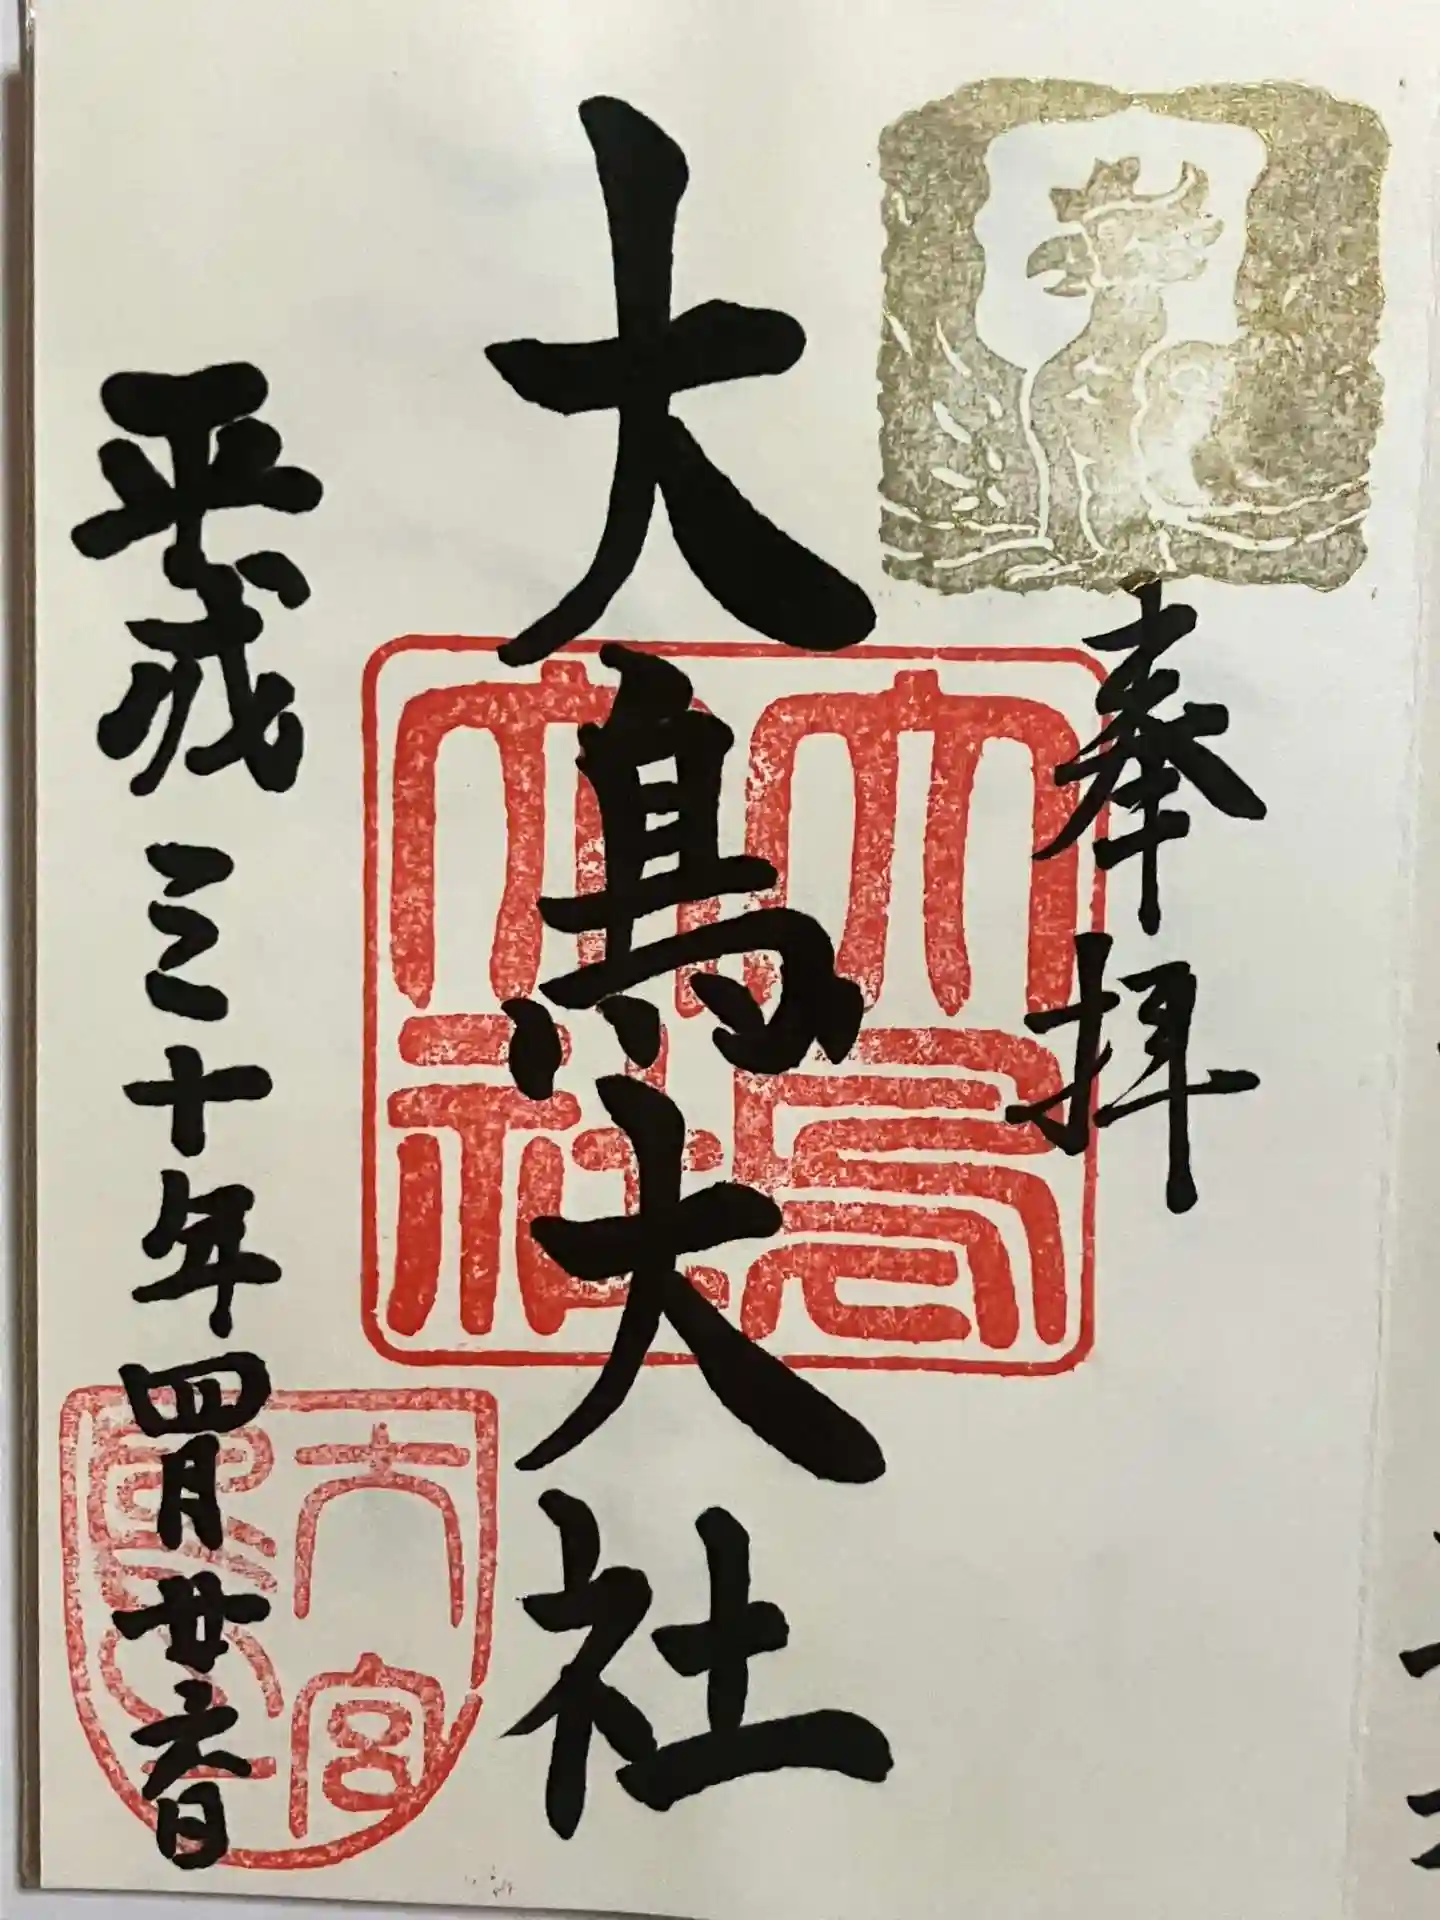 奉拝
大鳥大社
平成三十年四月廿六日
大鳥大社